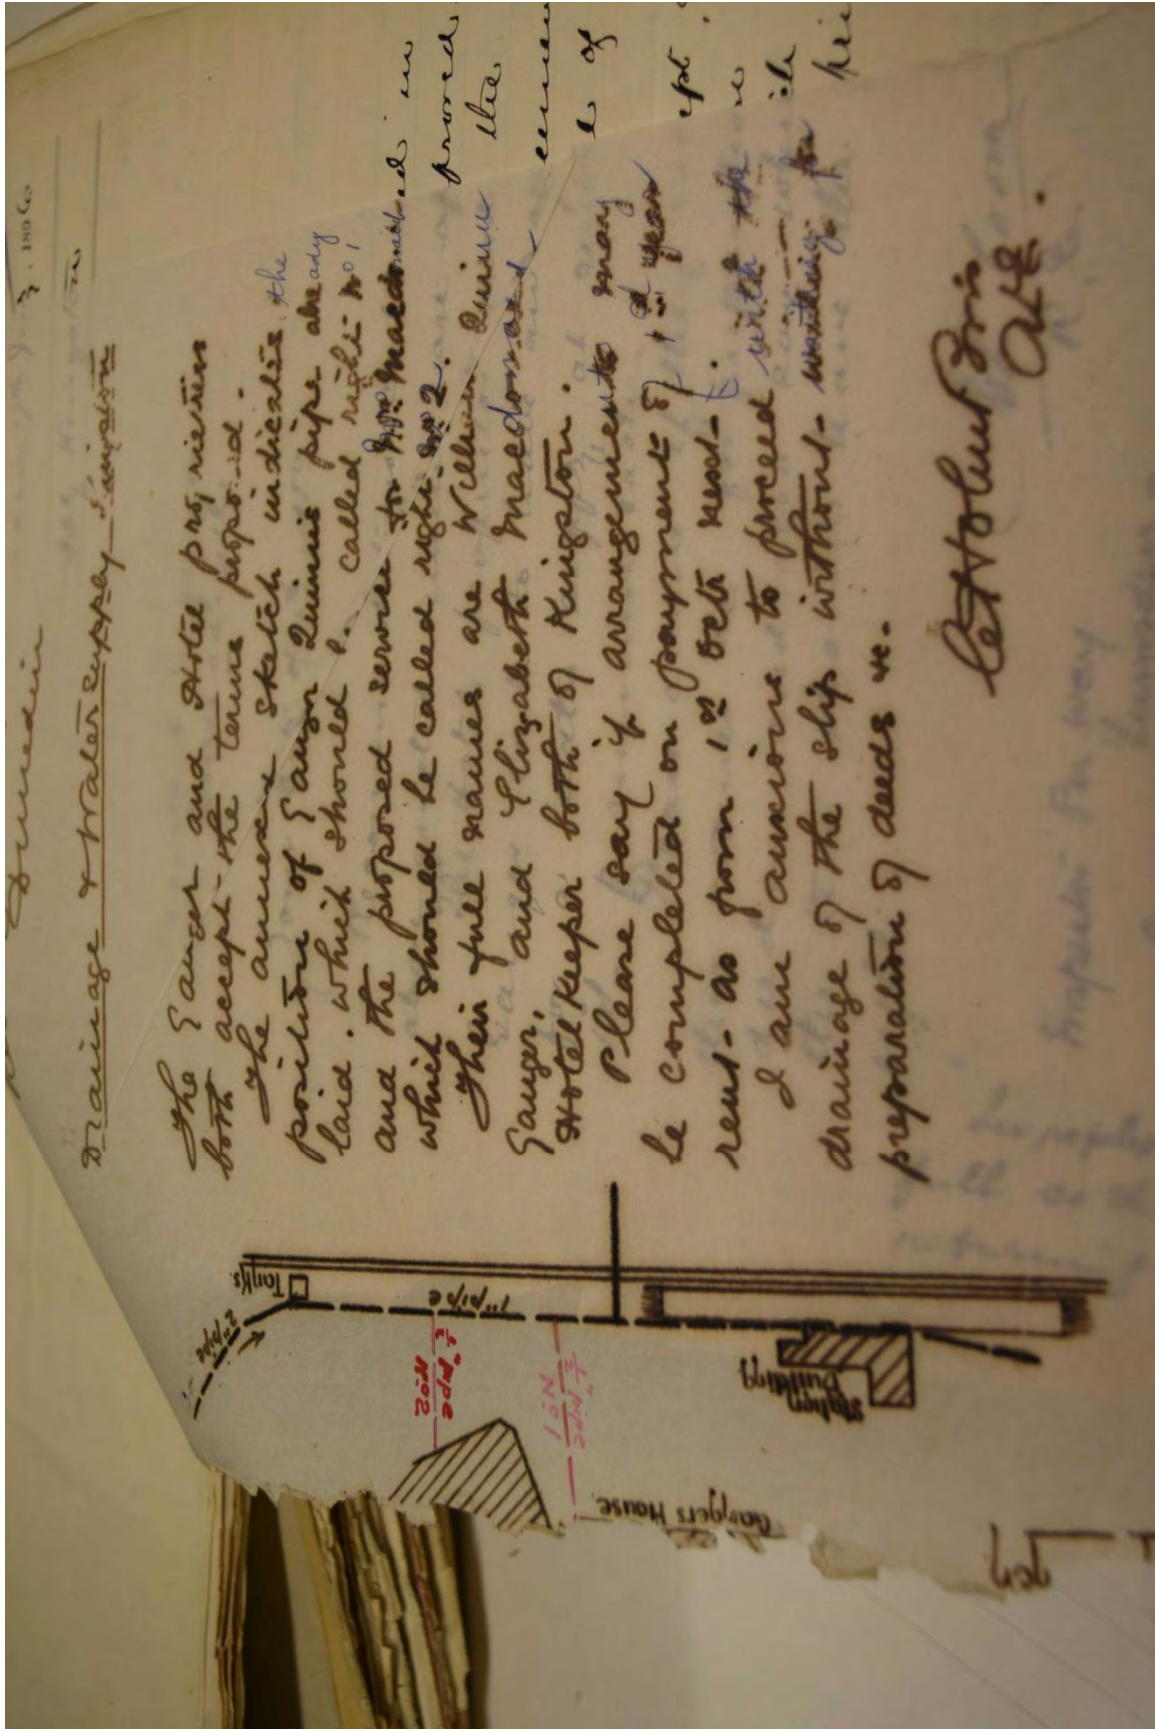 Dunedin
Drainage & Water supply
The Ganger and Hotel
both accept the terms
The annexed sketch indicates the
position of Ganger Quinns pipe already
laid. which should be called right No 1
and the proposed service to Mrs Macdonald
which should be called right No 2.
Their full names are William Quinn
Ganger, and Elizabeth Macdonald
Hotel Keeper both of Kingston.
Please say if arrangements may
be completed on payment of 1st year
rent as from 1st Octr next.
I am anxious to proceed with the
drainage of the slip without waiting for
preparation of deeds &c.
proved
the
of
2" pipe
Tanks
1" pipe
½" pipe
No 2
No 1
½" pipe
Station
Building
Gangers House